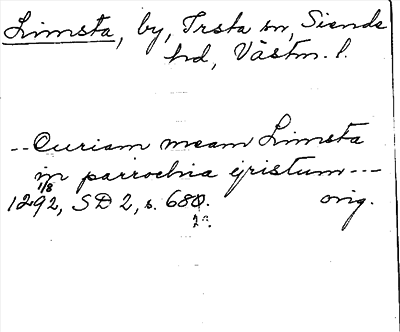 Limsta, by, Irsta sn, Siende
hd, Västm. l.
-- Curiam meam Limsta
in parrochia iristum ---
1/8
1292, SD 2, s. 680. orig.